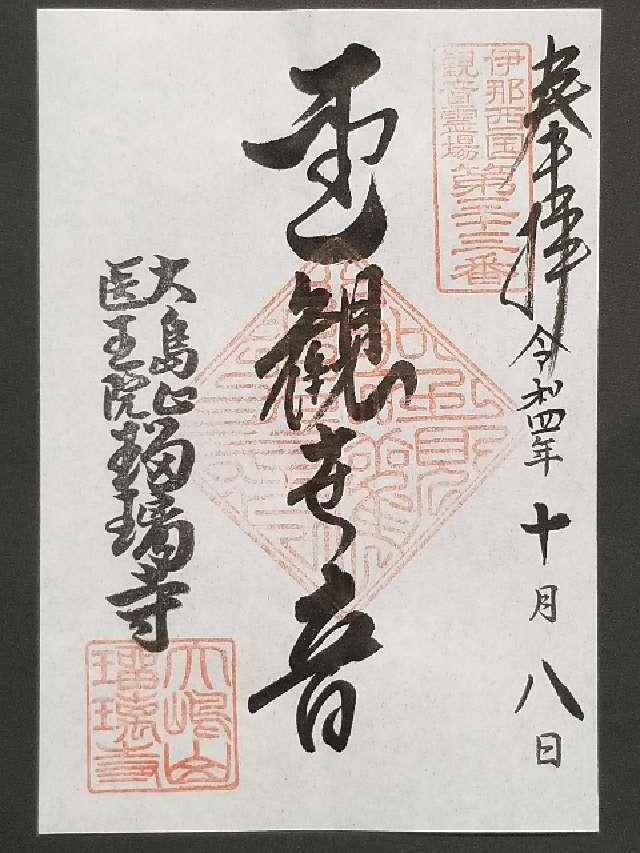 奉拝 令和四年十月八日
伊那西国
観音霊場
聖観世音
大島山
医王院
瑠璃寺
大嶋山
瑠璃寺